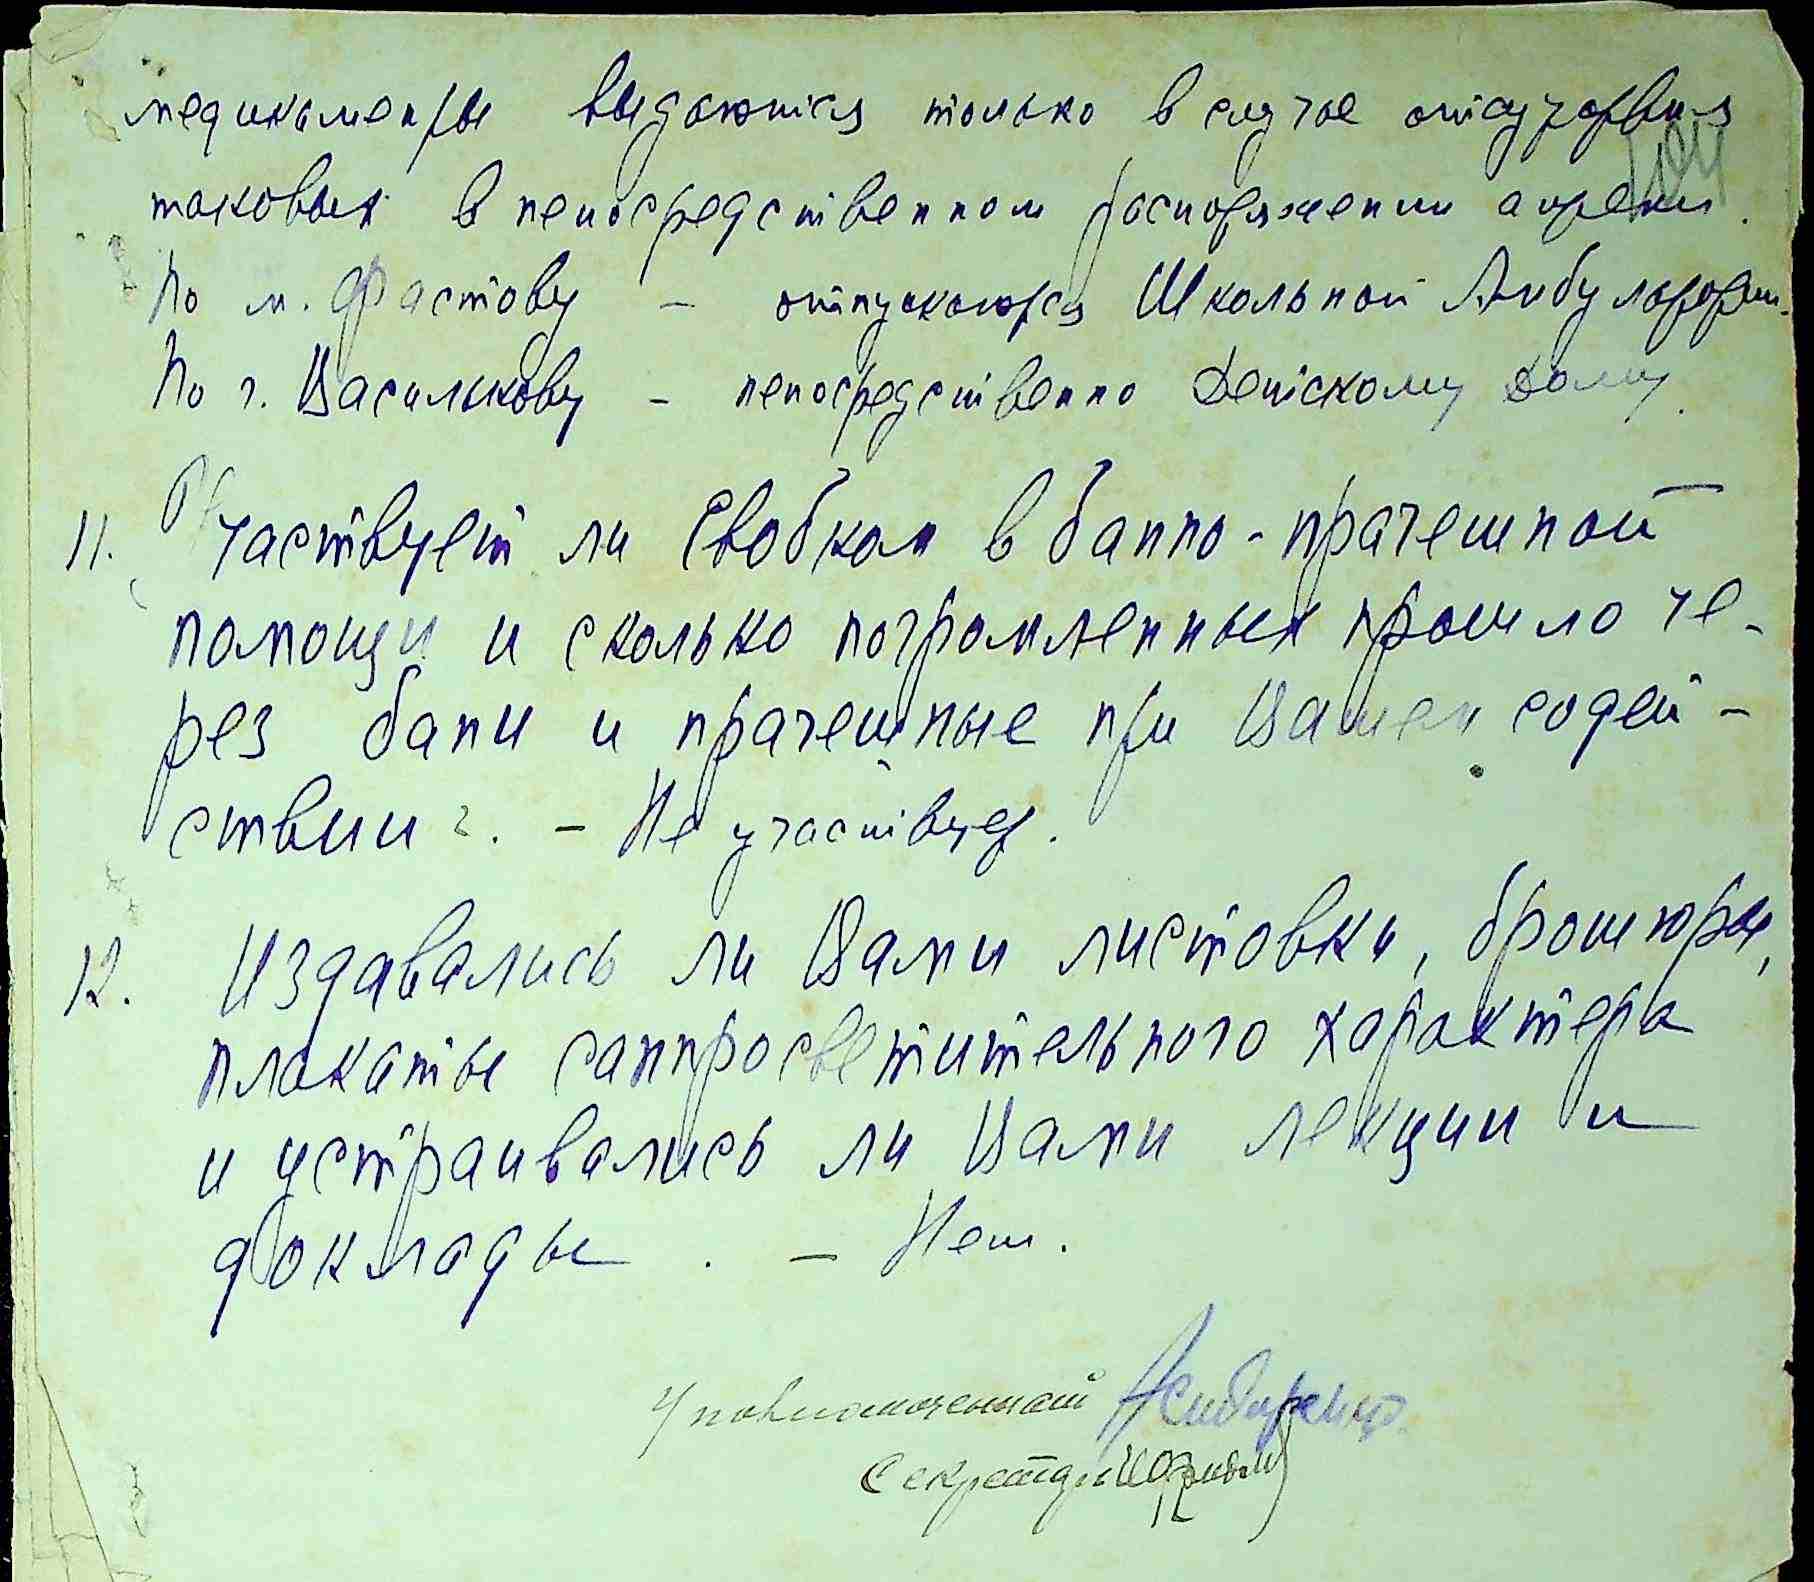 медикаменты выдаются только в случае отсутствия
таковых в непосредственном распоряжении аптеки.
По м. Фастову - отпускаются Школьной Амбулатории.
По г. Василькову - непосредственно Детскому Дому.
11. Участвует ли Евобком в банно-прачешной
помощи и сколько погромленных прошло че-
рез бани и прачешные при Вашем содей-
ствии?. - Не участвует.
12. Издавались ли Вами листовки, брошюры,
плакаты санпросветительного характера
и устраивались ли Вами лекции и
доклады. - Нет.
Уполномоченный
Секретарь